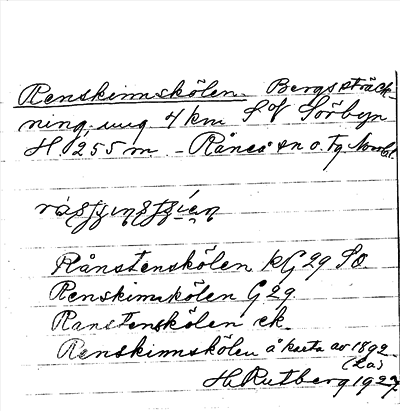 Renskinnskölen. Bergssträck-
ning, ung 4 km S of Sörbyn
H. 255 m. – Råneå sn o. tg Norrbl.
Rånstenskölen kG 29 SO.
Renskinnskölen G 29.
Ranstenskölen ek.
Renskinnskölen å karta av 1892
(La)
H. Rutberg 1927.